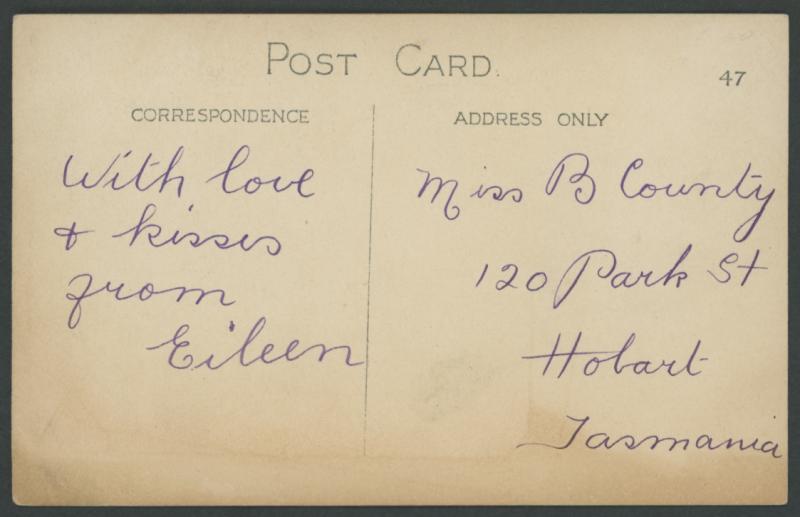 POST CARD.
47
CORRESPONDENCE
ADDRESS ONLY
With love
& kisses
from
Eileen
Miss B County
120 Park St
Hobart
Tasmania